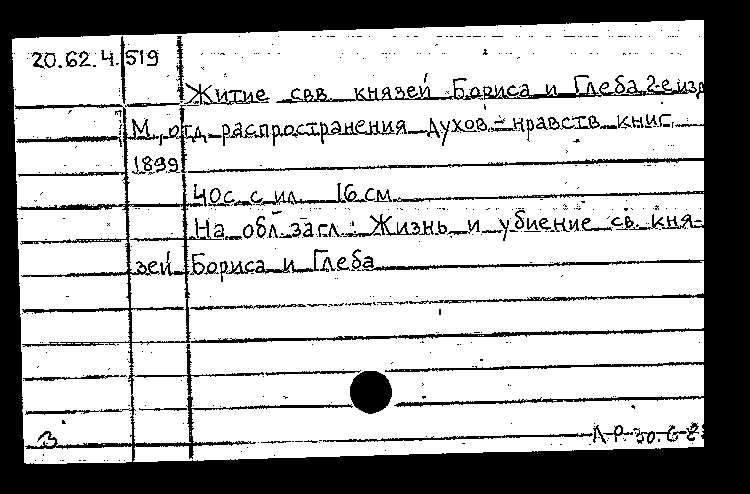 20.62.4.519
Житие свв. князей Бориса и Глеба. 2-е изд
М., отд. распространения духов.-нравств. книг,
1899
40с. с ил. 16 см.
На обл. загл.: Жизнь и убиение св. кня-
зей Бориса и Глеба
3